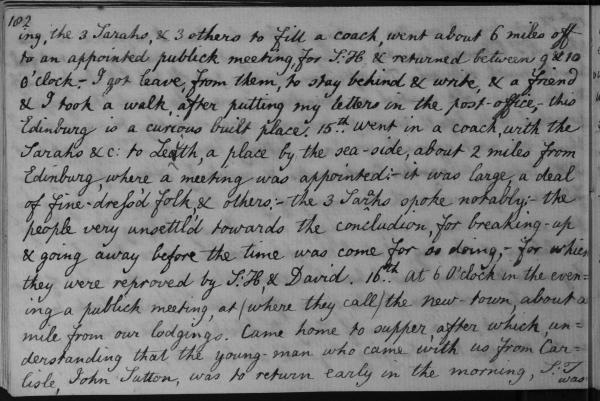 182
ing, the 3 Sarahs, & 3 others to fill a coach, went about 6 miles off
to an appointed publick meeting, for S:H, & returned between 9 & 10
O'clock:- I got leave, from them, to stay behind & write, & a friend
& I took a walk, after putting my letters in the post-office,- this
Edinburg is a curious built place. 15th went in a coach, with the
Sarahs & c: to Leith, a place by the sea-side, about 2 miles from
Edinburg, where a meeting was appointed:- it was large, a deal
of fine-dress'd folk, & others;- the 3 Sarahs spoke notably:- the
people very unsettl'd towards the concludion, for breaking-up
& going away before the time was come for so doing,- for which
they were reproved by S:H, & David. 16th. At 6 O'clock in the even-
ing a publick meeting, at (where they call) the new-town, about a
mile from our lodgings. Came home to supper, after which, un-
derstanding that the young-man who came with us from Car-
lisle, John Sutton, was to return early in the morning, S:T
was